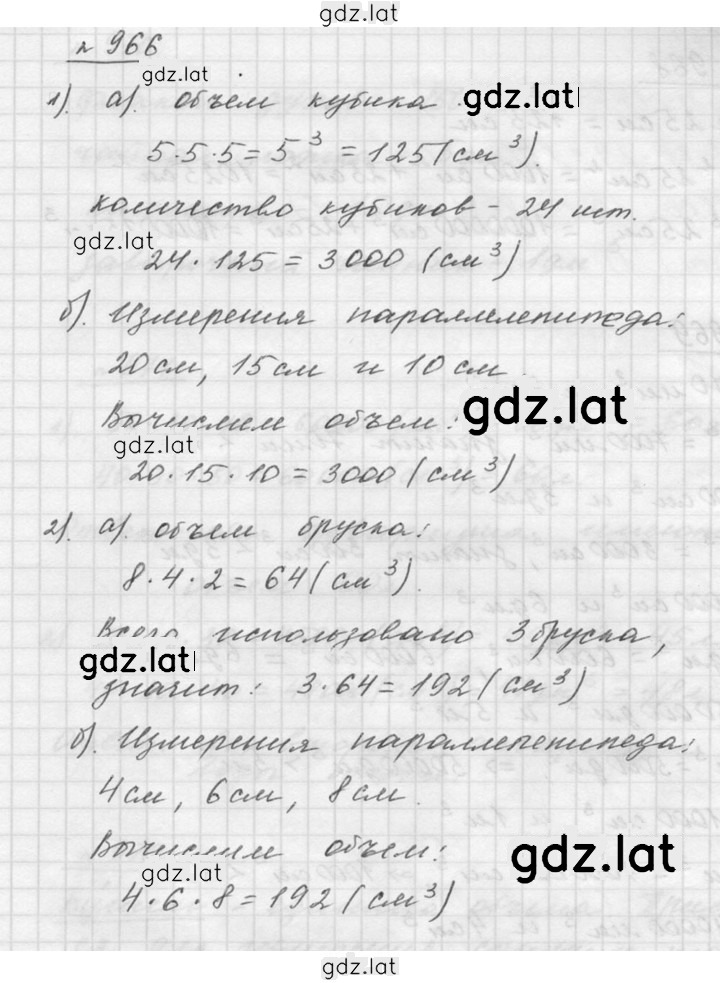 gdz.lat
№ 966
gdz.lat
1). а). объём кубика gdz.lat
5·5·5=5³=125(см³).
количество кубиков - 24 шт.
gdz.lat
24·125=3000 (см³)
б). Измерения параллелепипеда:
20см, 15см и 10см.
Вычислим объем: gdz.lat
gdz.lat
20·15·10=3000(см³)
2). а). объем бруска:
8·4·2=64(см³).
Всего использовано 3 бруска,
gdz.lat
значит: 3·64=192(см³)
б). Измерения параллелепипеда:
4см, 6см, 8см.
Вычислим объем: gdz.lat
gdz.lat
4·6·8=192(см³)
gdz.lat